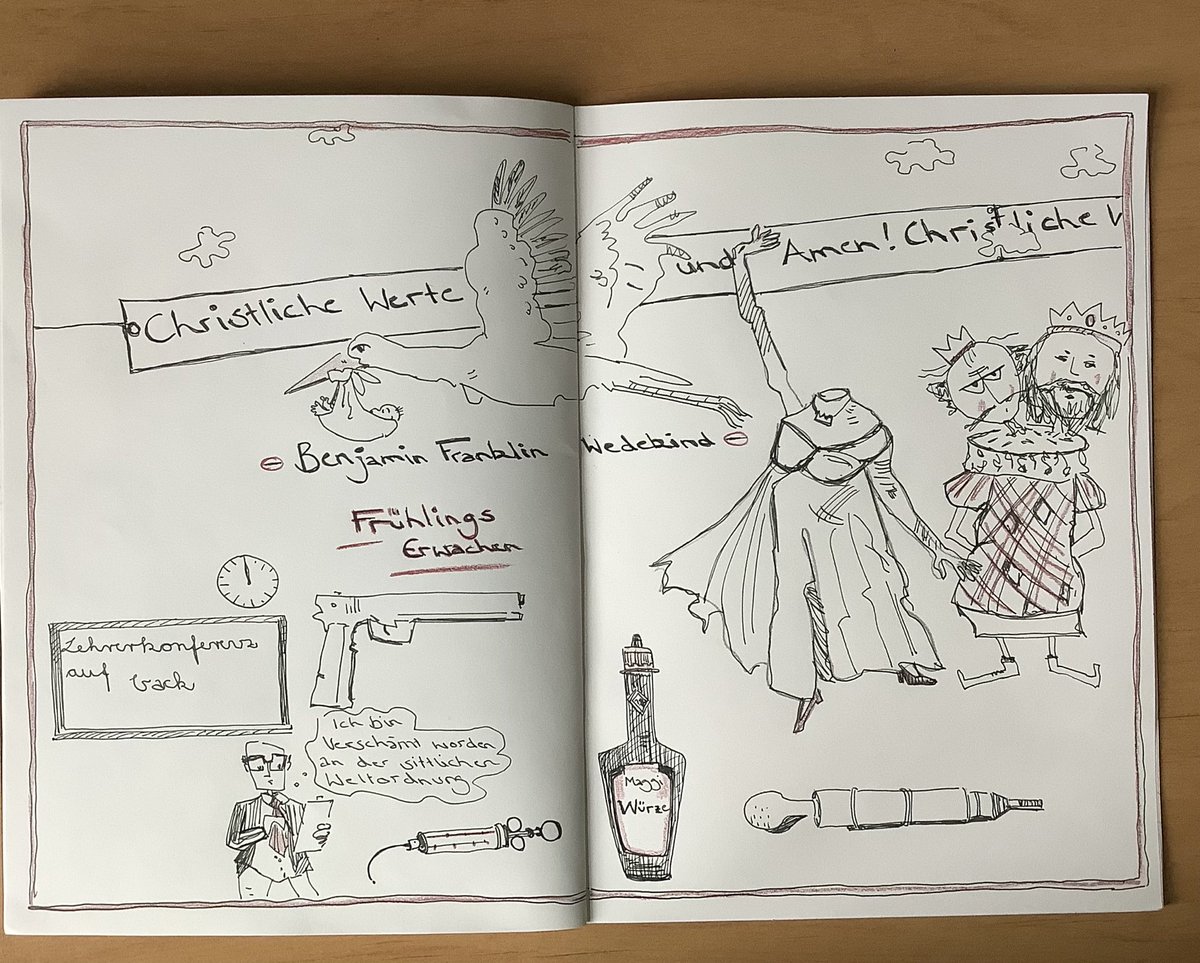 Christliche Werte und Amen! Christliche W
Benjamin Franklin Wedekind
Frühlings
Erwachen
Lehrerkonferenz
auf Crack
Ich bin
Verschämt worden
an der sittlichen
Weltordnung
Maggi
Würze